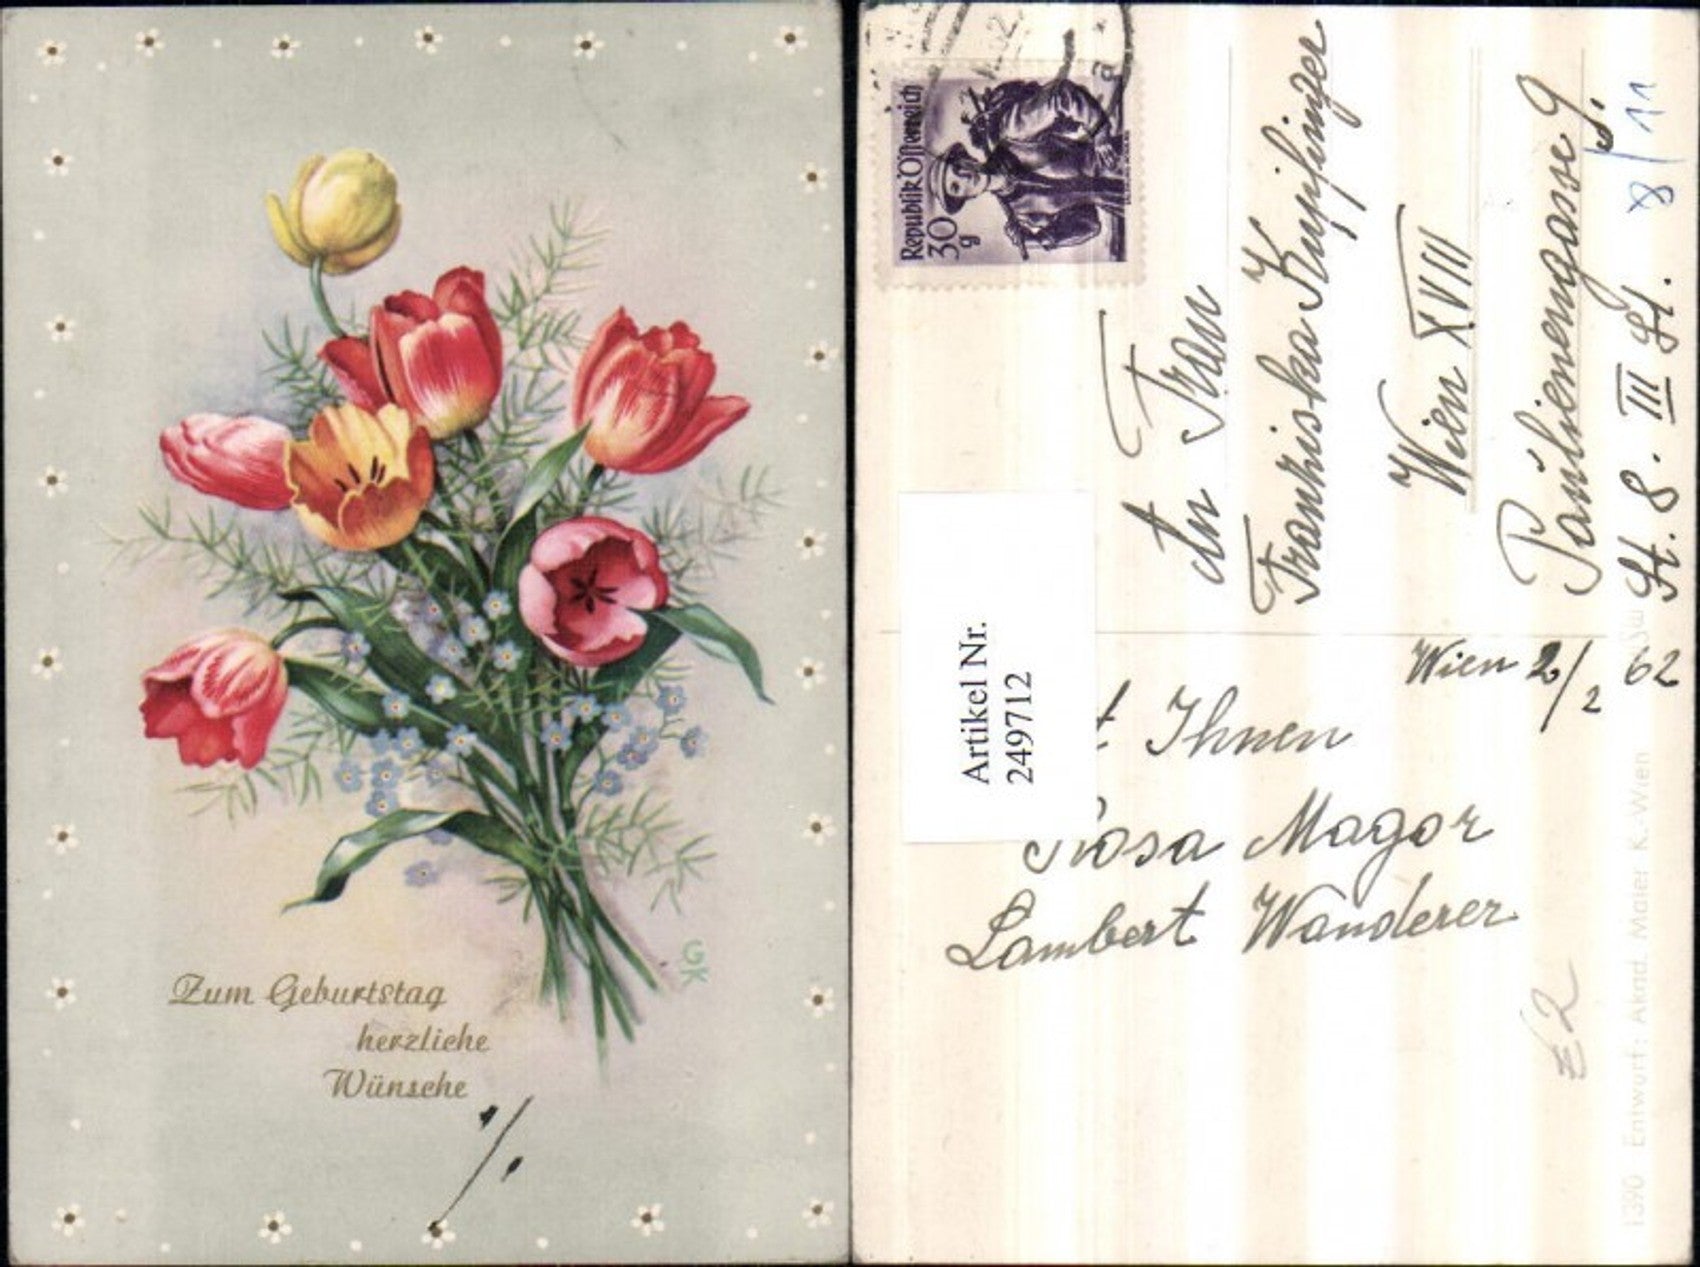 Zum Geburtstag
herzliche
Wünsche
GK
Republik Österreich
30
g
An Frau
Franziska Kupfinger
Wien XVIII
Paulienengasse 9.
St. 8. III St.
8/11
Artikel Nr.
249712
Wien 2/2 62
Ihnen
Rosa Magor
Lambert Wanderer
1390 Entwurf: Akad. Maler K. Wien